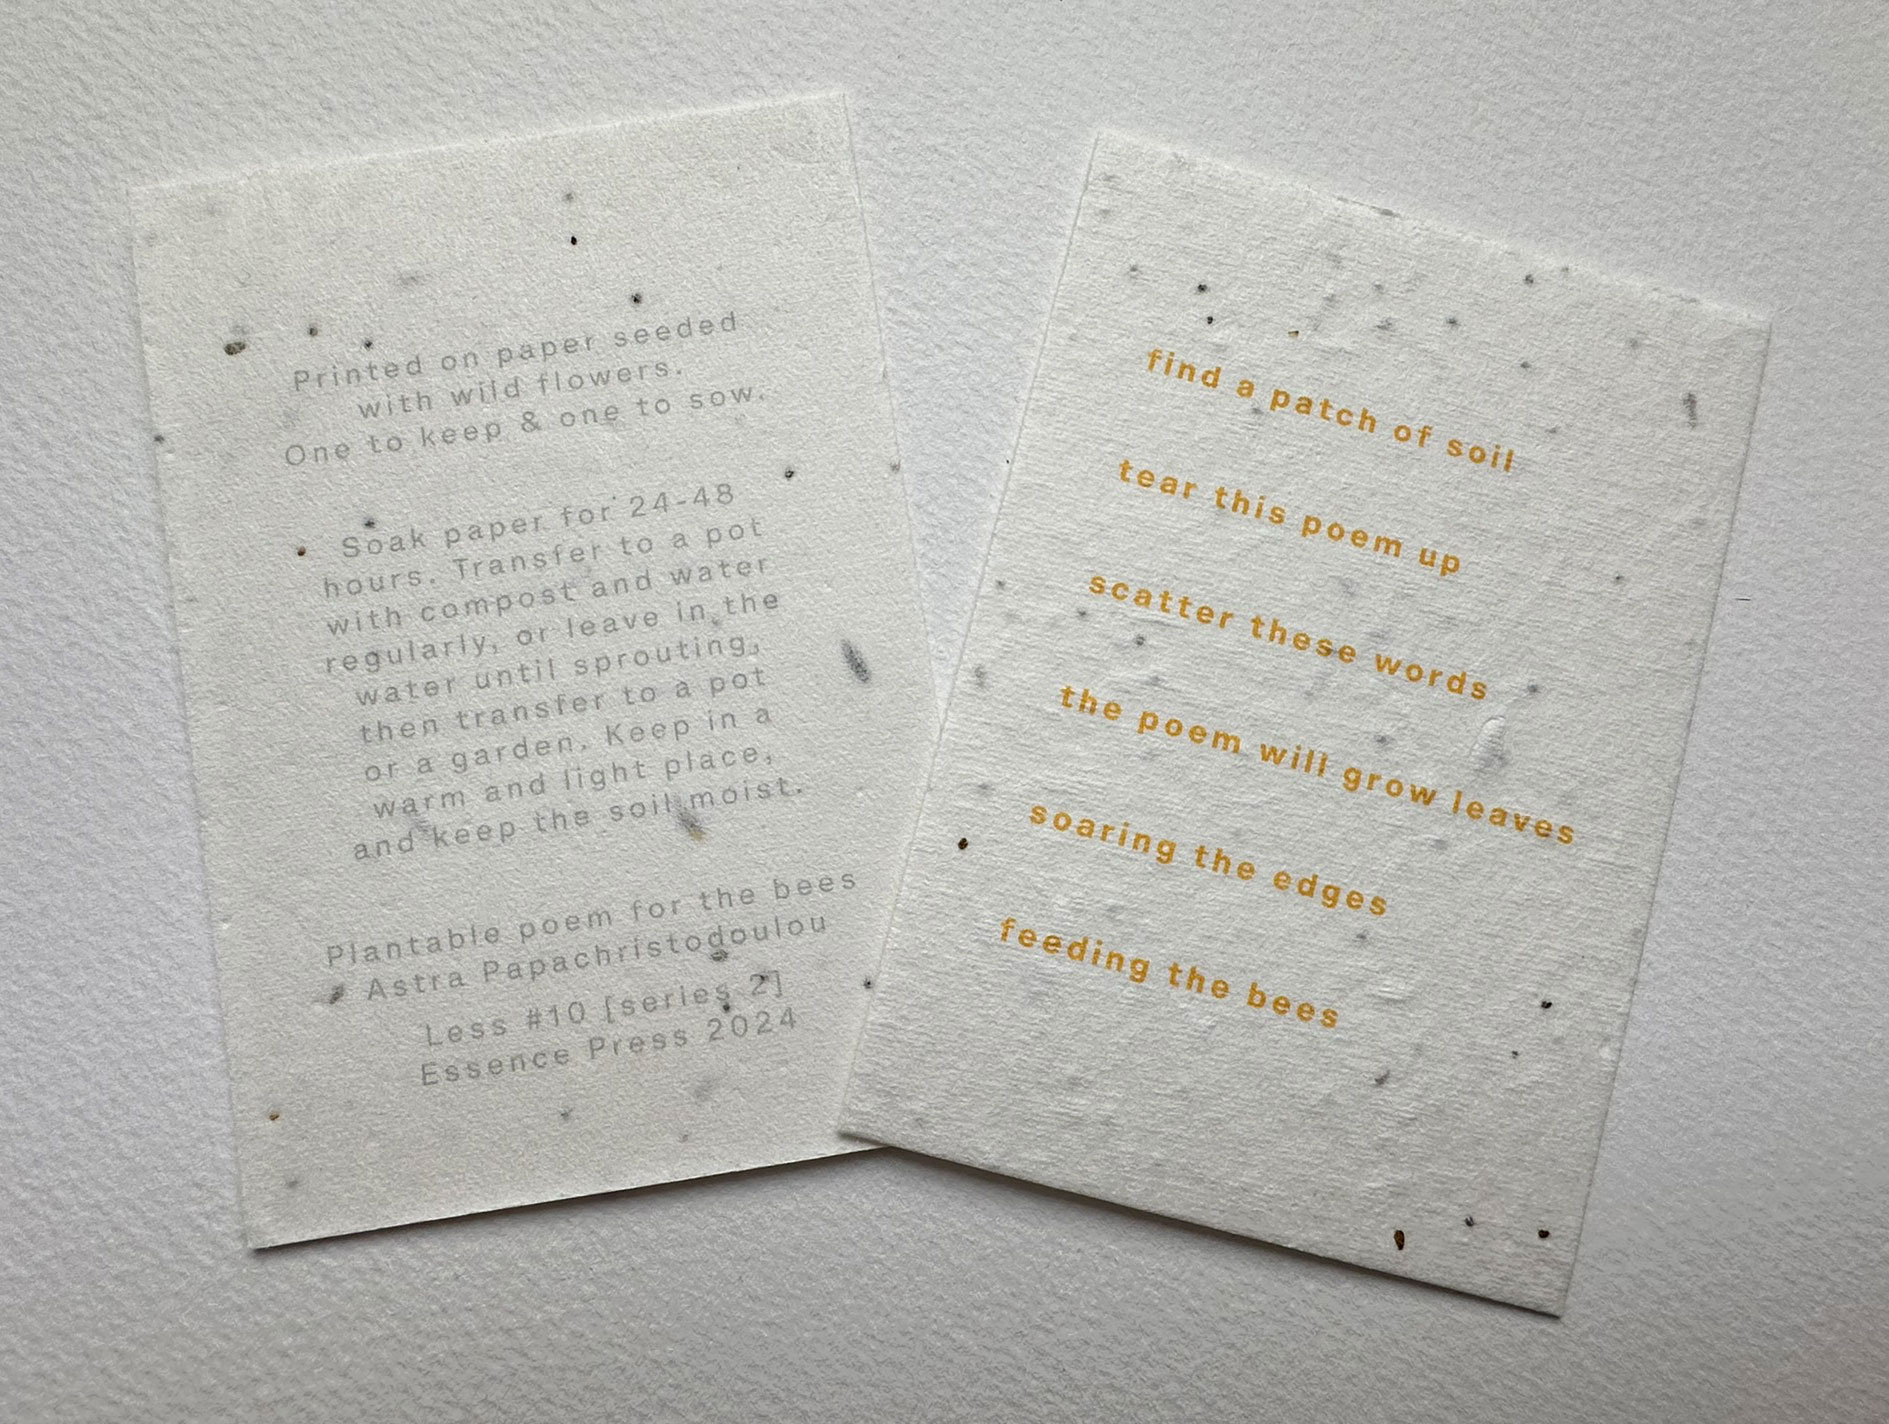 Printed on paper seeded
with wild flowers.
One to keep & one to sow.
Soak paper for 24-48
hours. Transfer to a pot
with compost and water
regularly, or leave in the
water until sprouting,
then transfer to a pot
or a garden. Keep in a
warm and light place,
and keep the soil moist.
Plantable poem for the bees
Astra Papachristodoulou
Less #10 [series 2]
Essence Press 2024
find a patch of soil
tear this poem up
scatter these words
the poem will grow leaves
soaring the edges
feeding the bees